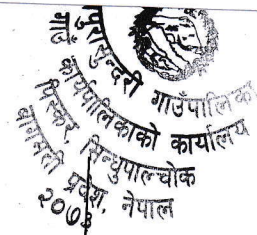 पुरासुन्दरी गाउँपालिका
गाउँ कार्यपालिकाको कार्यालय
पिस्कर, सिन्धुपाल्चोक
बागमती प्रदेश, नेपाल
२०७३